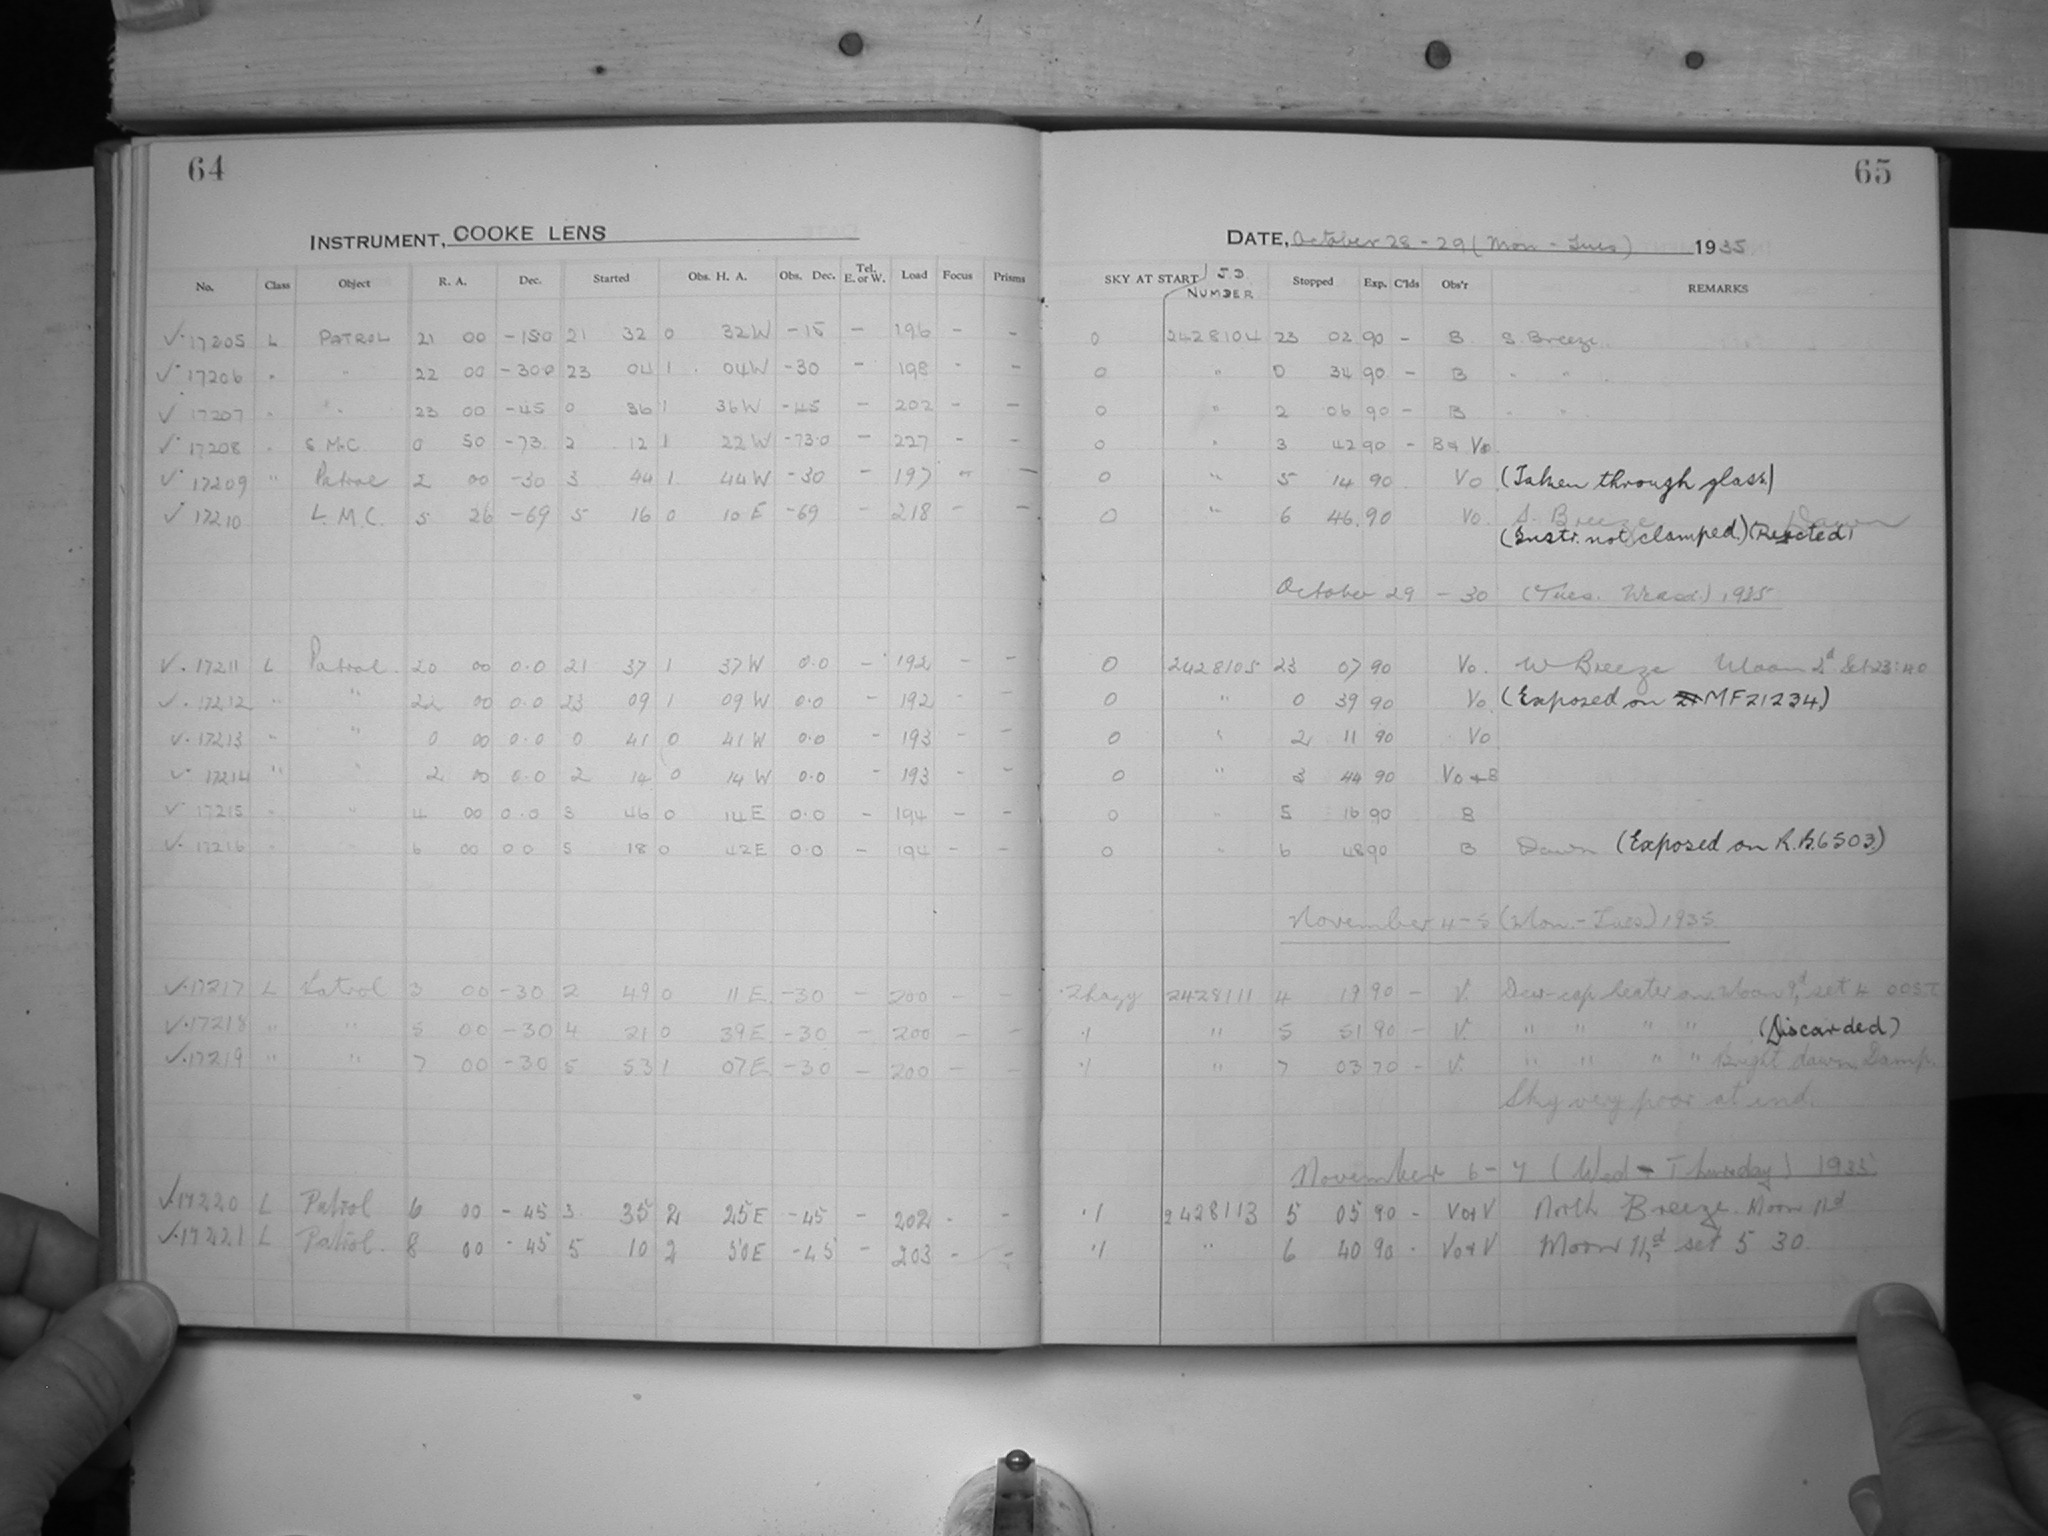 64
INSTRUMENT, COOKE LENS
No. Class Object R. A. Dec. Started Obs. H. A. Obs. Dec. Tel. E. or W. Load Focus Prisms
✓ 17205 L PATROL 21 00 -15.0 21 32 0 32W -15 - 196 - -
✓ 17206 " " 22 00 -30.0 23 04 1 04W -30 - 198 - -
✓ 17207 " " 23 00 -45 0 36 1 36W -45 - 202 - -
✓ 17208 " S.M.C. 0 50 -73. 2 12 1 22W -73.0 - 227 - -
✓ 17209 " Patrol 2 00 -30 3 44 1 44W -30 - 197 - -
✓ 17210 L.M.C. 5 26 -69 5 16 0 10E -69 - 218 - -
✓ 17211 L Patrol 20 00 0.0 21 37 1 37W 0.0 - 192 - -
✓ 17212 " " 22 00 0.0 23 09 1 09W 0.0 - 192 - -
✓ 17213 " " 0 00 0.0 0 41 0 41W 0.0 - 193 - -
✓ 17214 " " 2 00 0.0 2 14 0 14W 0.0 - 193 - -
✓ 17215 " " 4 00 0.0 3 46 0 14E 0.0 - 194 - -
✓ 17216 " " 6 00 0.0 5 18 0 42E 0.0 - 194 - -
✓ 17217 L Patrol 3 00 -30 2 49 0 11E -30 - 200 - -
✓ 17218 " " 5 00 -30 4 21 0 39E -30 - 200 - -
✓ 17219 " " 7 00 -30 5 53 1 07E -30 - 200 - -
✓ 17220 L Patrol 6 00 -45 3 35 2 25E -45 - 202 - -
✓ 17221 L Patrol 8 00 -45 5 10 2 50E -45 - 203 - -
65
DATE, October 28-29 (Mon-Tues) 1935
SKY AT START J.D. NUMBER Stopped Exp. C'lds Obs'r REMARKS
0 2428104 23 02 90 - B S. Breeze
0 " 0 34 90 - B " "
0 " 2 06 90 - B " "
0 " 3 42 90 - B & Vo
0 " 5 14 90 Vo (Taken through glass)
0 " 6 46 90 Vo. S. Breeze Dawn
(Instr. not clamped.) (Rejected)
October 29-30 (Tues. Wead.) 1935
0 2428105 23 07 90 Vo. W Breeze Moon 2d Set 23:40
0 " 0 39 90 Vo (Exposed on MF21234)
0 " 2 11 90 Vo
0 " 3 44 90 Vo + B
0 " 5 16 90 B
0 " 6 48 90 B Dawn (Exposed on R.B.6503)
November 4-5 (Mon.-Tues) 1935
.2 hazy 2428111 4 19 90 - V. Dew-cap heater on. Moon 9d, set 4 00 S.T.
.1 " 5 51 90 - V. " " " " (Discarded)
.1 " 7 03 70 - V. " " " " Bright dawn. Damp.
Sky very poor at end.
November 6-7 (Wed-Thursday) 1935
.1 2428113 5 05 90 - Vo+V North Breeze. Moon 11d
.1 " 6 40 90 - Vo+V Moon 11d, set 5 30